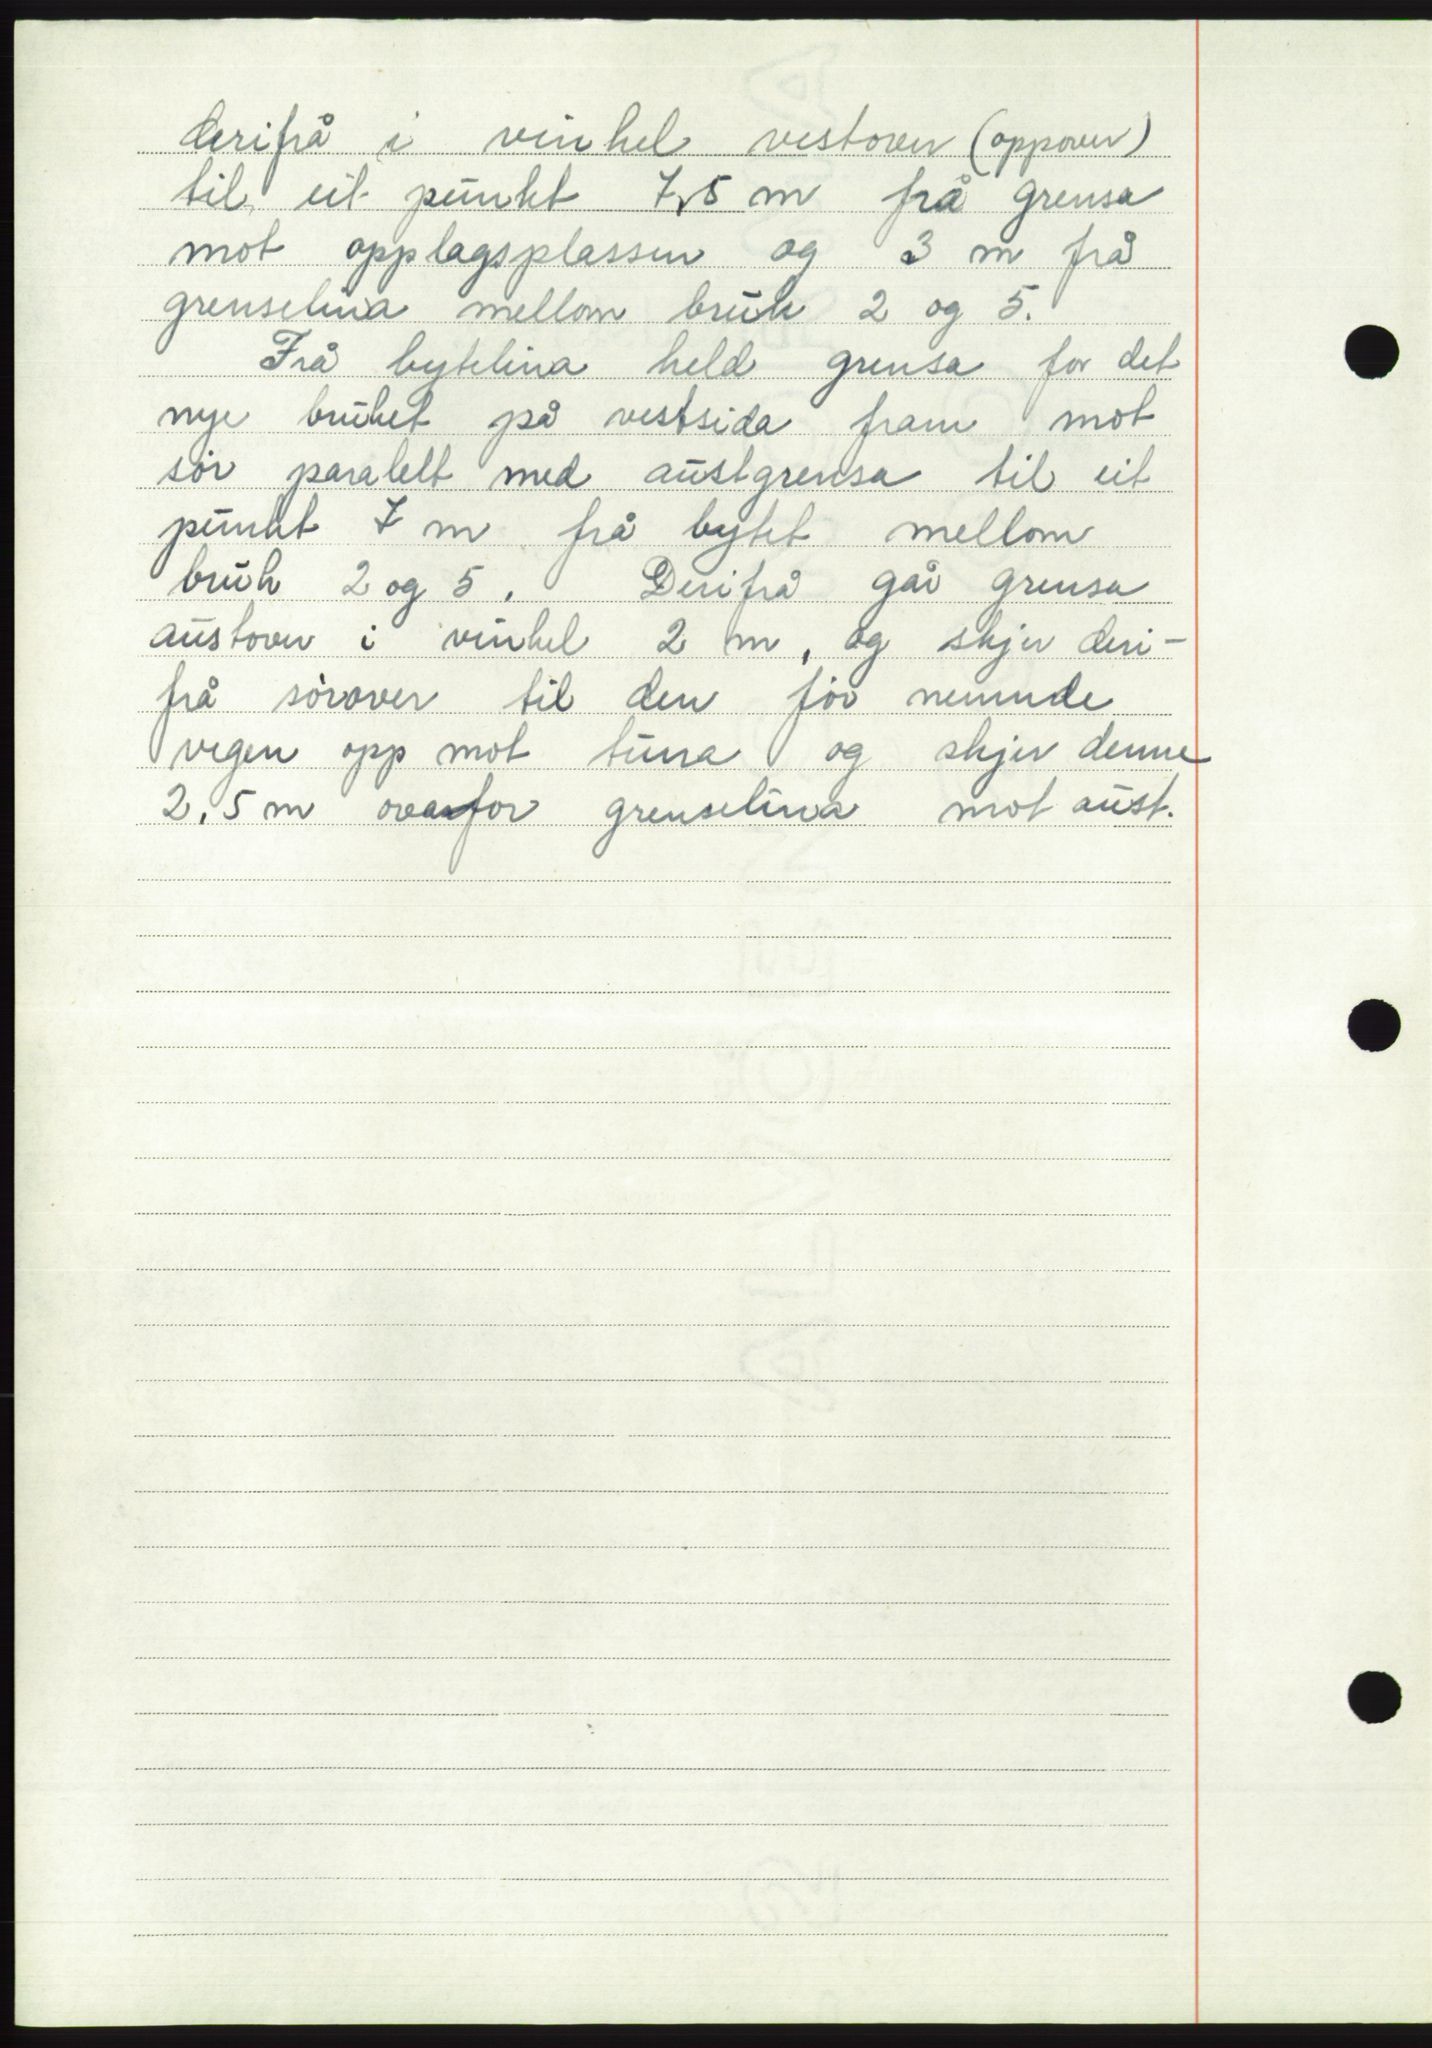 derifrå i vinkel vestover (oppover)
til eit punkt 7,5 m frå grensa
mot opplagsplassen og 3 m frå
grenselina mellom bruk 2 og 5.
Frå bytelina held grensa for det
nye bruket på vestsida fram mot
sør paralelt med austgrensa til eit
punkt 7 m frå bytet mellom
bruk 2 og 5. Derifrå går grensa
austover i vinkel 2 m, og skjer deri-
frå sørover til den før nemnde
vegen opp mot tuna og skjer denne
2,5 m ovanfor grenselina mot aust.